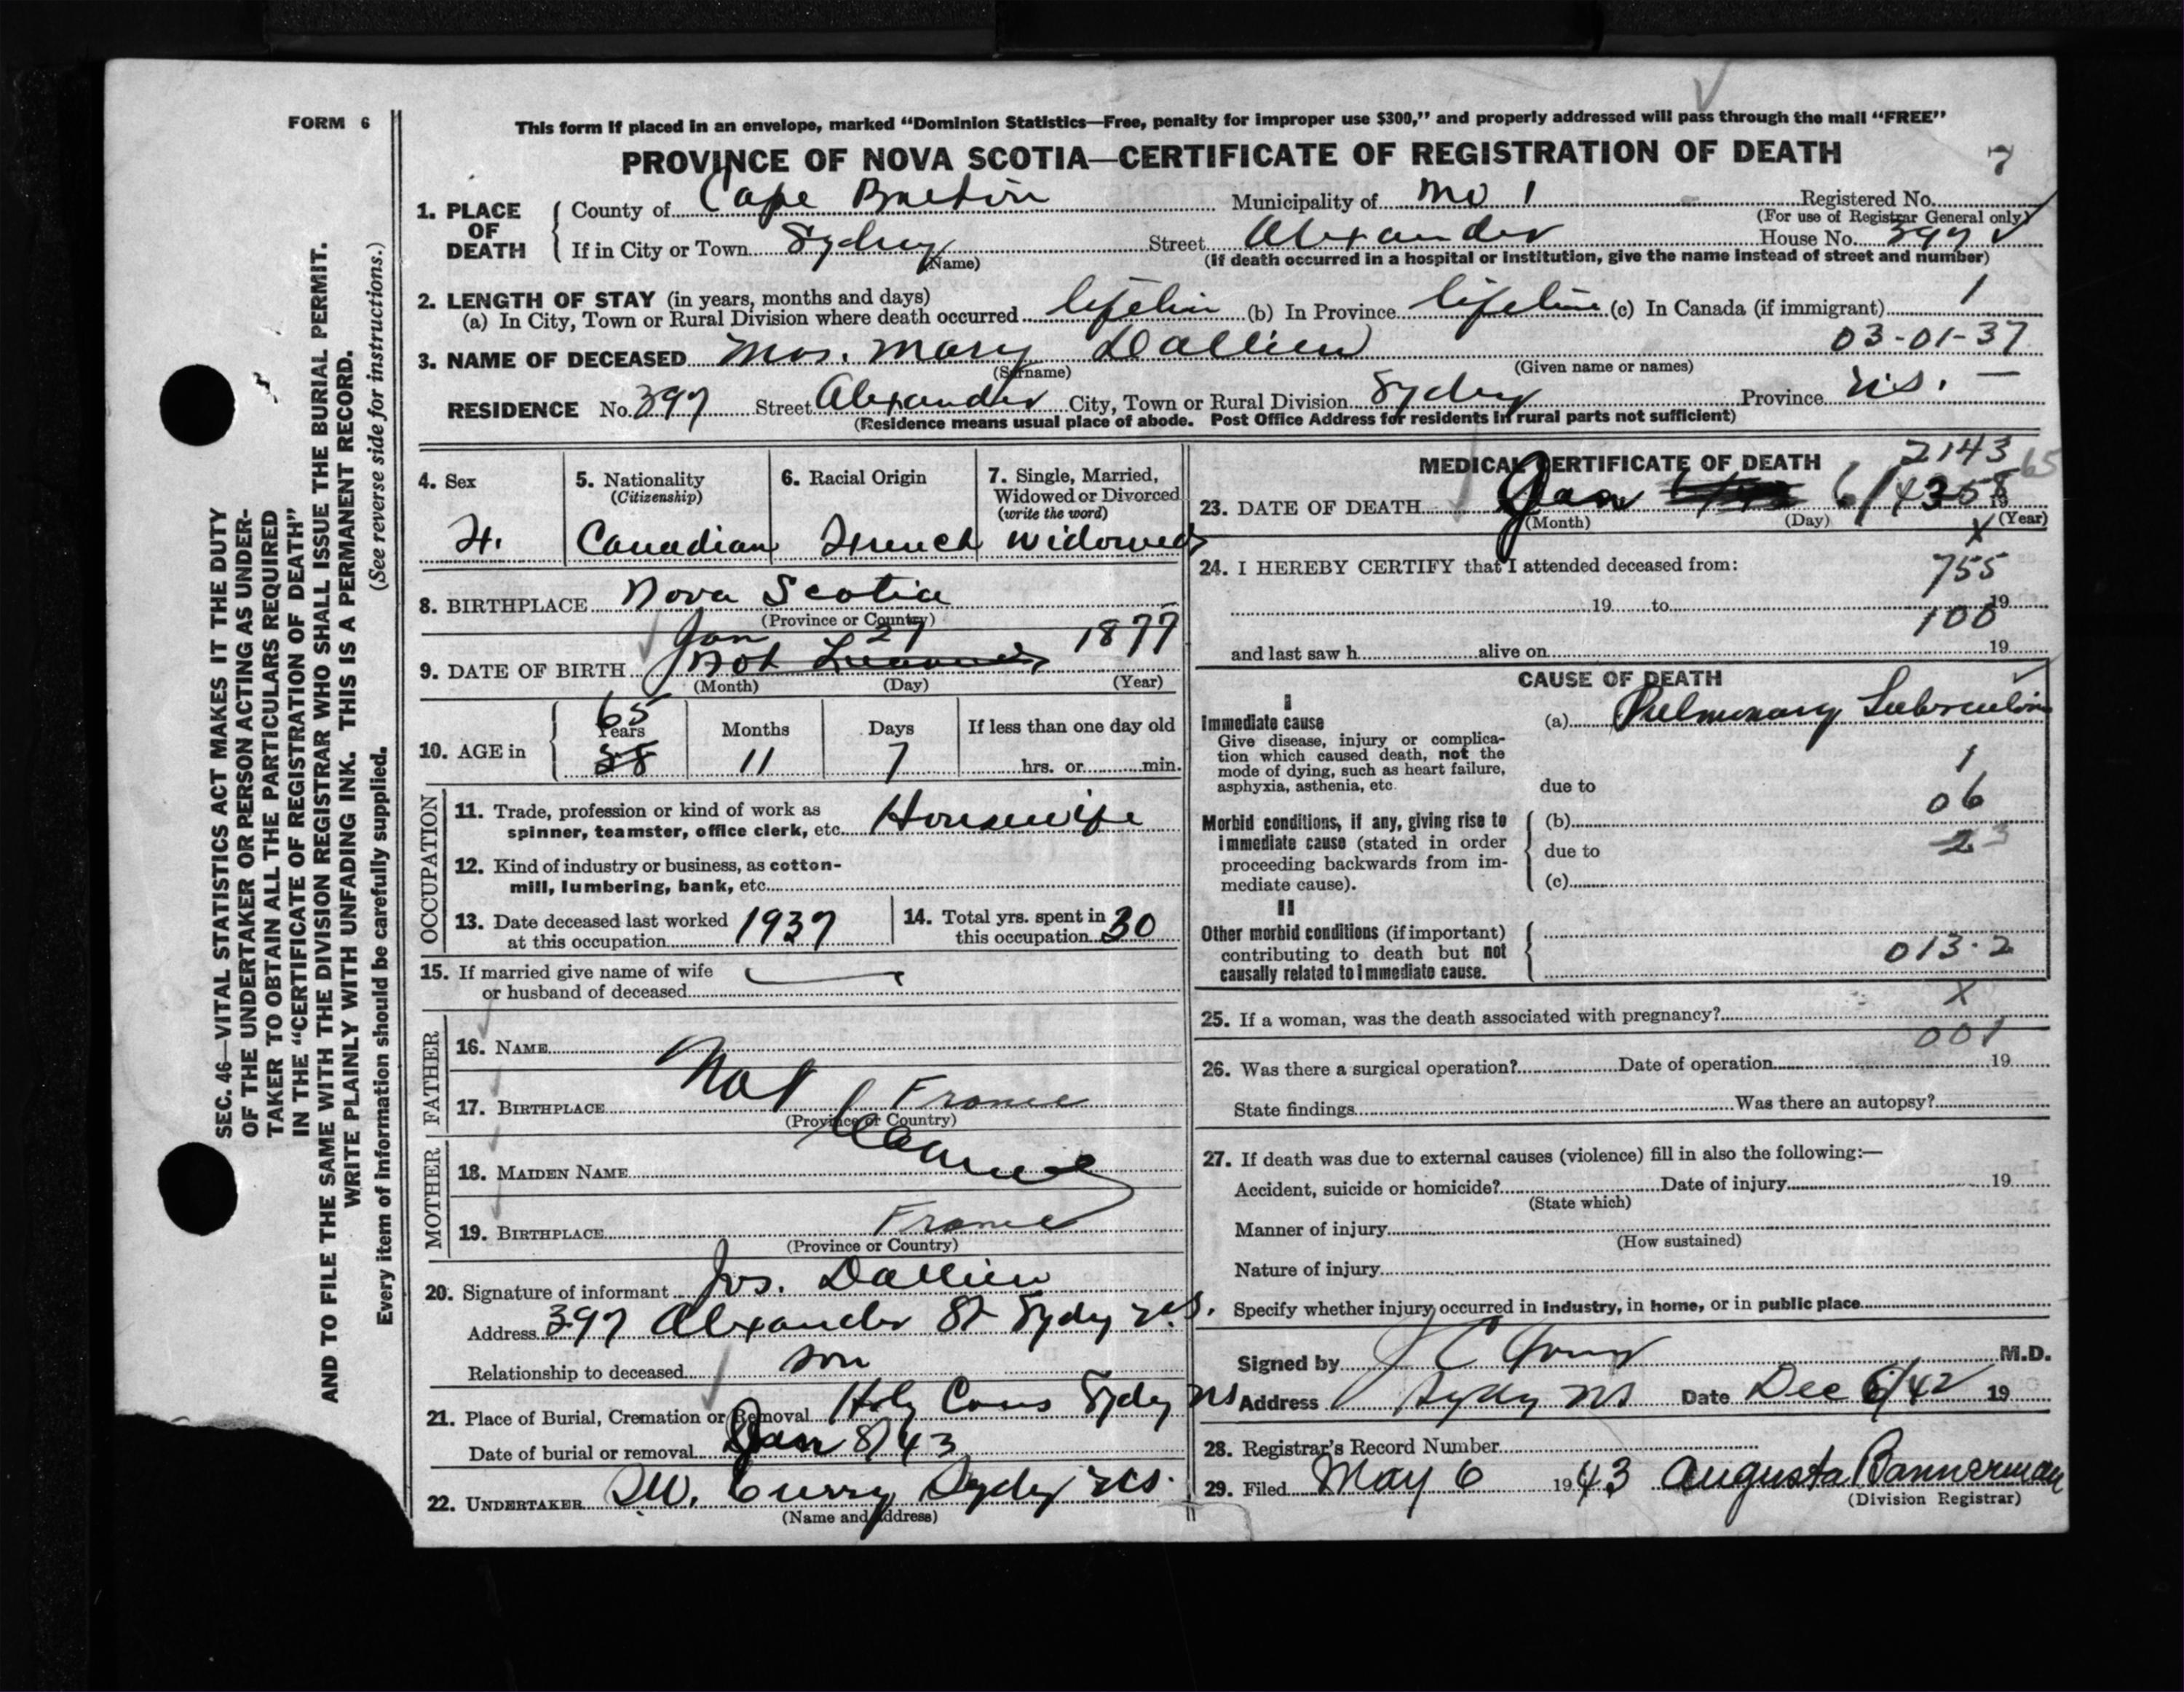 FORM 6
This form if placed in an envelope, marked "Dominion Statistics—Free, penalty for improper use $300," and properly addressed will pass through the mail "FREE"
PROVINCE OF NOVA SCOTIA—CERTIFICATE OF REGISTRATION OF DEATH
7
1. PLACE OF DEATH
County of Cape Breton Municipality of No 1 Registered No.
(For use of Registrar General only)
If in City or Town Sydney Street Alexander House No. 397
(Name) (If death occurred in a hospital or institution, give the name instead of street and number)
2. LENGTH OF STAY (in years, months and days)
(a) In City, Town or Rural Division where death occurred lifetime (b) In Province lifetime (c) In Canada (if immigrant) 1
03-01-37
3. NAME OF DECEASED Mrs. Mary Dallien
(Surname) (Given name or names)
RESIDENCE No. 397 Street Alexander City, Town or Rural Division Sydney Province N.S. —
(Residence means usual place of abode. Post Office Address for residents in rural parts not sufficient)
4. Sex F.
5. Nationality (Citizenship) Canadian
6. Racial Origin French
7. Single, Married, Widowed or Divorced (write the word) Widowed
8. BIRTHPLACE Nova Scotia
(Province or Country)
9. DATE OF BIRTH Jan 27 1877
(Month) (Day) (Year)
10. AGE in
65
Years Months Days If less than one day old
58 11 7 hrs. or min.
OCCUPATION
11. Trade, profession or kind of work as
spinner, teamster, office clerk, etc. Housewife
12. Kind of industry or business, as cotton-
mill, lumbering, bank, etc.
13. Date deceased last worked
at this occupation 1937
14. Total yrs. spent in
this occupation 30
15. If married give name of wife
or husband of deceased —
FATHER
16. NAME
Not
17. BIRTHPLACE France
(Province or Country)
MOTHER
18. MAIDEN NAME
19. BIRTHPLACE France
(Province or Country)
20. Signature of informant Jos. Dallien
Address 397 Alexander St Sydney N.S.
Relationship to deceased son
21. Place of Burial, Cremation or Removal Holy Cross Sydney NS
Date of burial or removal Jan 8/43
22. UNDERTAKER Curry Sydney N.S.
(Name and address)
MEDICAL CERTIFICATE OF DEATH
2143 65
23. DATE OF DEATH Jan 6/43 58 19
(Month) (Day) (Year)
X
24. I HEREBY CERTIFY that I attended deceased from:
755
19 to 19
100
and last saw h alive on 19
CAUSE OF DEATH
I
Immediate cause
Give disease, injury or complica-
tion which caused death, not the
mode of dying, such as heart failure,
asphyxia, asthenia, etc.
(a) Pulmonary Tuberculosis
1
due to
06
Morbid conditions, if any, giving rise to
immediate cause (stated in order
proceeding backwards from im-
mediate cause).
(b)
23
due to
(c)
II
Other morbid conditions (if important)
contributing to death but not
causally related to immediate cause.
013-2
X
25. If a woman, was the death associated with pregnancy?
001
26. Was there a surgical operation? Date of operation 19
State findings Was there an autopsy?
27. If death was due to external causes (violence) fill in also the following:—
Accident, suicide or homicide? Date of injury 19
(State which)
Manner of injury
(How sustained)
Nature of injury
Specify whether injury occurred in industry, in home, or in public place
Signed by M.D.
Address Sydney NS Date Dec 6/42 19
28. Registrar's Record Number
29. Filed May 6 1943 Augusta Bannerman
(Division Registrar)
SEC. 46—VITAL STATISTICS ACT MAKES IT THE DUTY
OF THE UNDERTAKER OR PERSON ACTING AS UNDER-
TAKER TO OBTAIN ALL THE PARTICULARS REQUIRED
IN THE "CERTIFICATE OF REGISTRATION OF DEATH"
AND TO FILE THE SAME WITH THE DIVISION REGISTRAR WHO SHALL ISSUE THE BURIAL PERMIT.
WRITE PLAINLY WITH UNFADING INK. THIS IS A PERMANENT RECORD.
Every item of information should be carefully supplied. (See reverse side for instructions.)